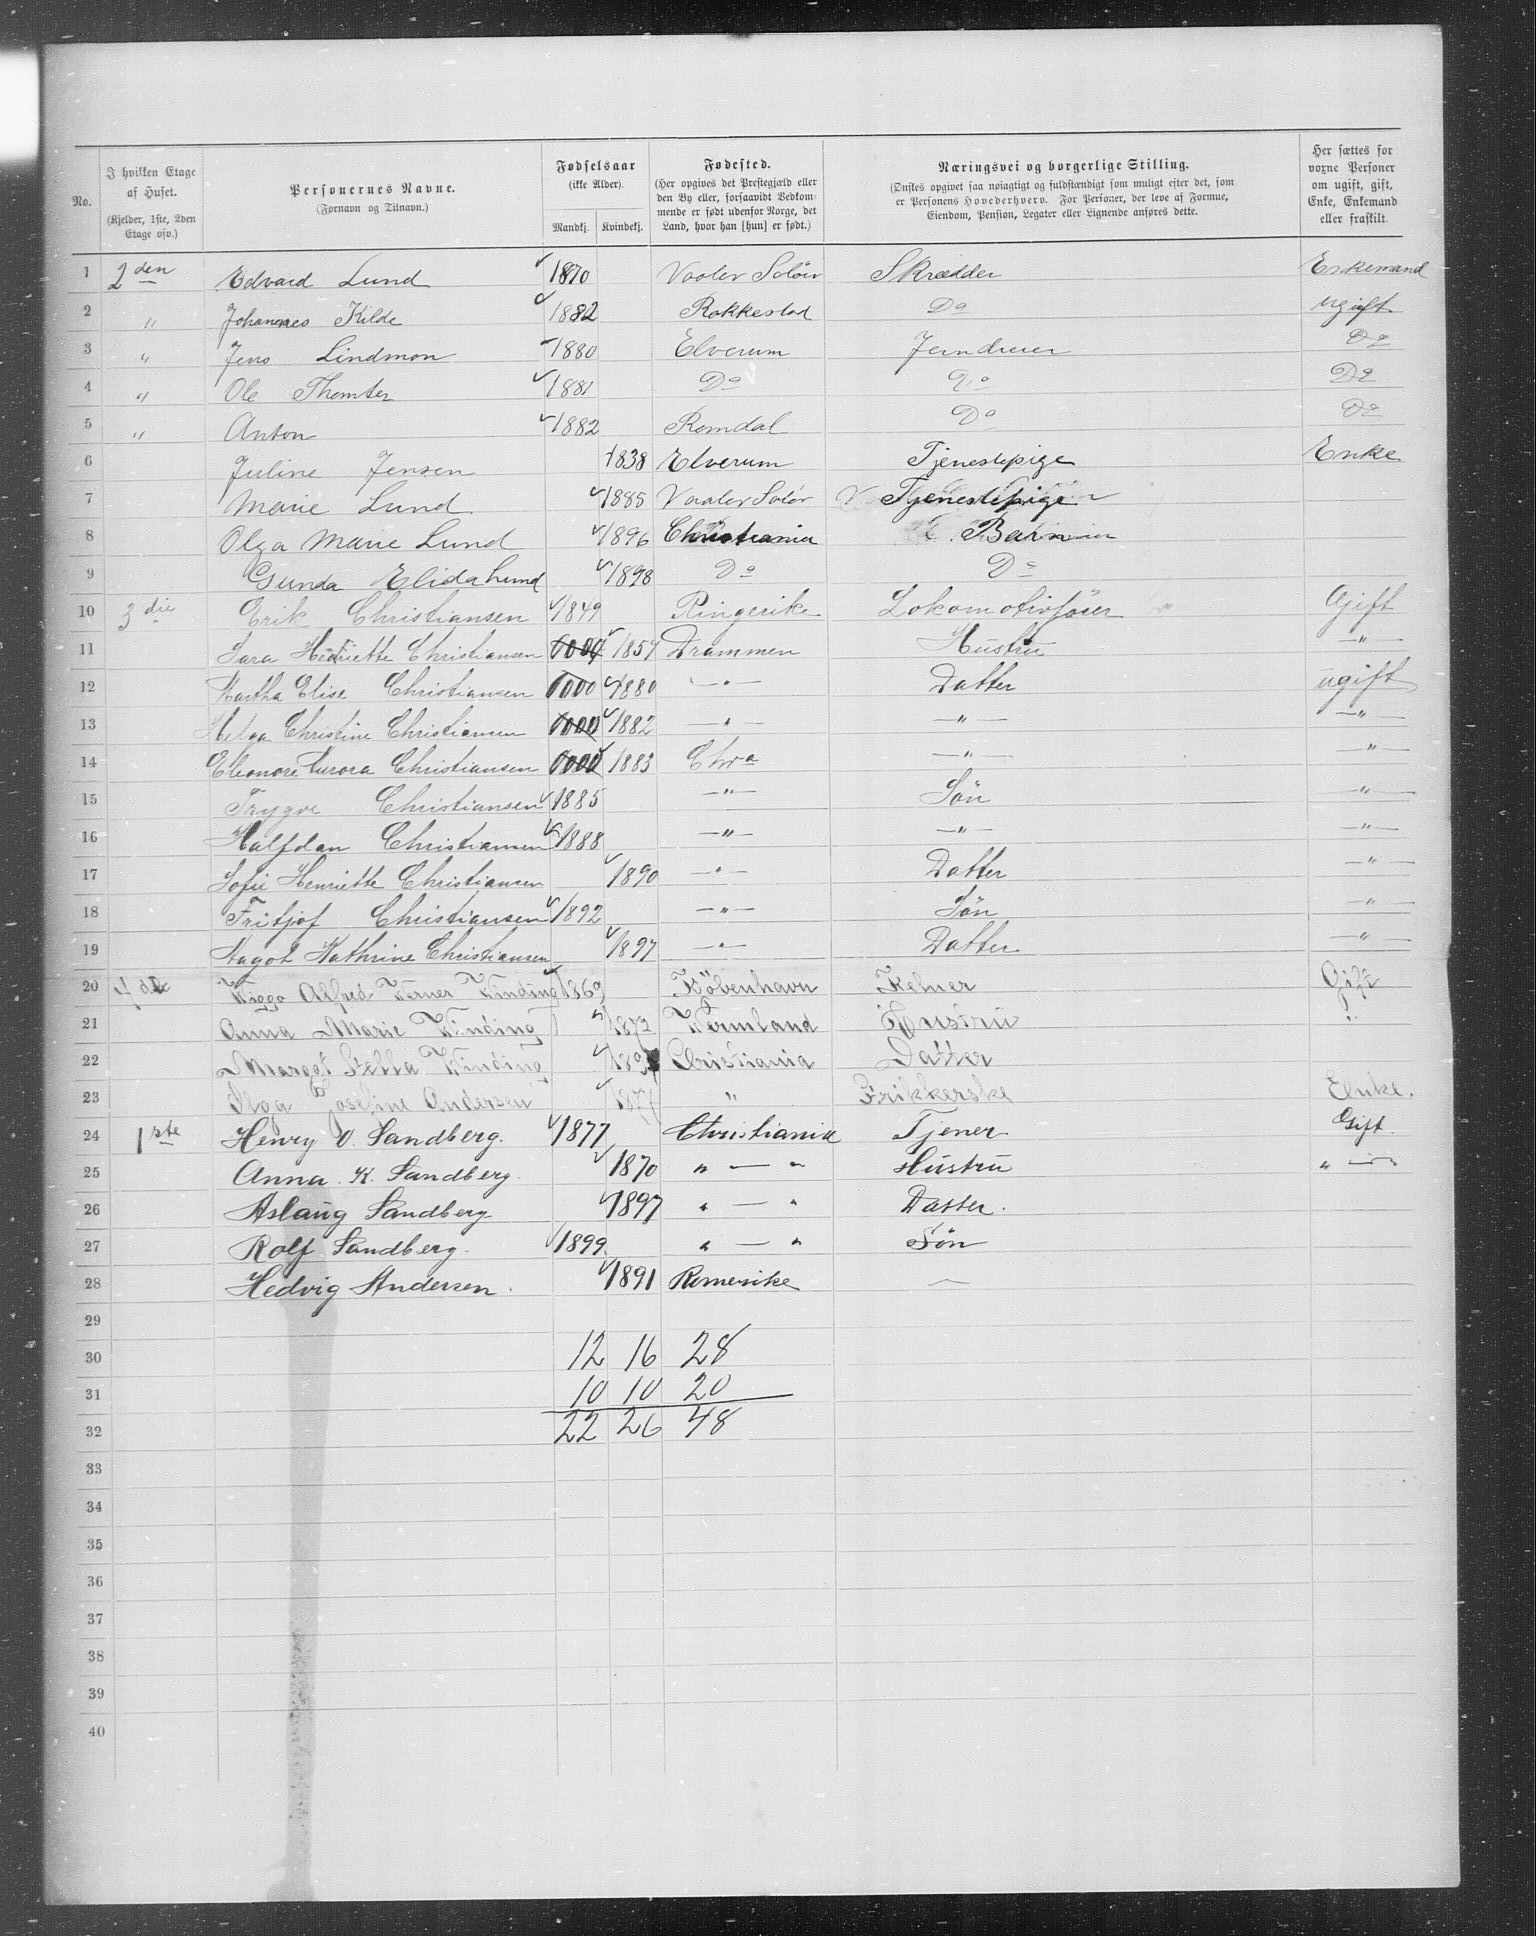 No.
I hvilken Etage af Huset. (Kjelder, 1ste, 2den Etage osv.)
Personernes Navne. (Fornavn og Tilnavn.)
Fødselsaar (ikke Alder). Mandkj. Kvindekj.
Fødested. (Her opgives det Prestegjæld eller den By eller, forsaavidt Vedkommende er født udenfor Norge, det Land, hvor han [hun] er født.)
Næringsvei og borgerlige Stilling. (Ønskes opgivet saa nøiagtigt og fuldstændigt som muligt efter det, som er Personens Hovederhverv. For Personer, der leve af Formue, Eiendom, Pension, Legater eller Lignende anføres dette.
Her sættes for voxne Personer om ugift, gift, Enke, Enkemand eller fraskilt.
1 2den Edvard Lund 1870 Vaaler Solør Skrædder Enkemand
2 " Johannes Kilde 1882 Rakkestad Do ugift
3 " Jens Lindmon 1880 Elverum Jerndreier Do
4 " Ole Thomter 1881 Do Do Do
5 " Anton 1882 Romdal Do Do
6 Juline Jensen 1838 Elverum Tjenestepige Enke
7 Marie Lund 1885 Vaaler Solør Tjenestepige
8 Olga Marie Lund 1896 Christiania Barn
9 Gunda Elida Lund 1898 Do Do
10 3die Erik Christiansen 1849 Ringerike Lokomotivfører Gift
11 Sara Hedriette Christiansen 1857 Drammen Hustru — " —
12 Martha Elise Christiansen 1880 — " — Datter ugift
13 Helga Christine Christiansen 1882 — " — — " — — " —
14 Eleonore Aurora Christiansen 1883 Chra — " — — " —
15 Trygve Christiansen 1885 — " — Søn — " —
16 Halfdan Christiansen 1888 — " — — " — — " —
17 Sofie Henriette Christiansen 1890 — " — Datter — " —
18 Fritjof Christiansen 1892 — " — Søn — " —
19 Aagot Kathrine Christiansen 1897 — " — Datter — " —
20 4de Wiggo Alfred Werner Winding 1869 København Kelner Gift
21 Anna Marie Winding 1872 Wermland Hustru "
22 Margot Stella Winding Christiania Datter
23 Olga Josefine Andersen 1877 " Strikkerske Enke.
24 1ste Henry O. Sandberg. 1877 Christiania Tjener Gift.
25 Anna. K. Sandberg. 1870 " — " Hustru " — "
26 Aslaug Sandberg 1897 " — " Datter.
27 Rolf Sandberg. 1899 " — " Søn
28 Hedvig Andersen. 1891 Romerike —
29
30 12 16 28
31 10 10 20
32 22 26 48
33
34
35
36
37
38
39
40